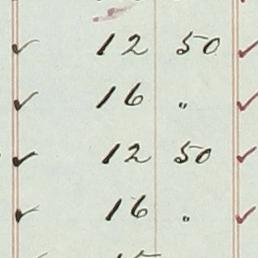 ✓ 12 50 ✓
✓ 16 " ✓
✓ 12 50 ✓
✓ 16 " ✓